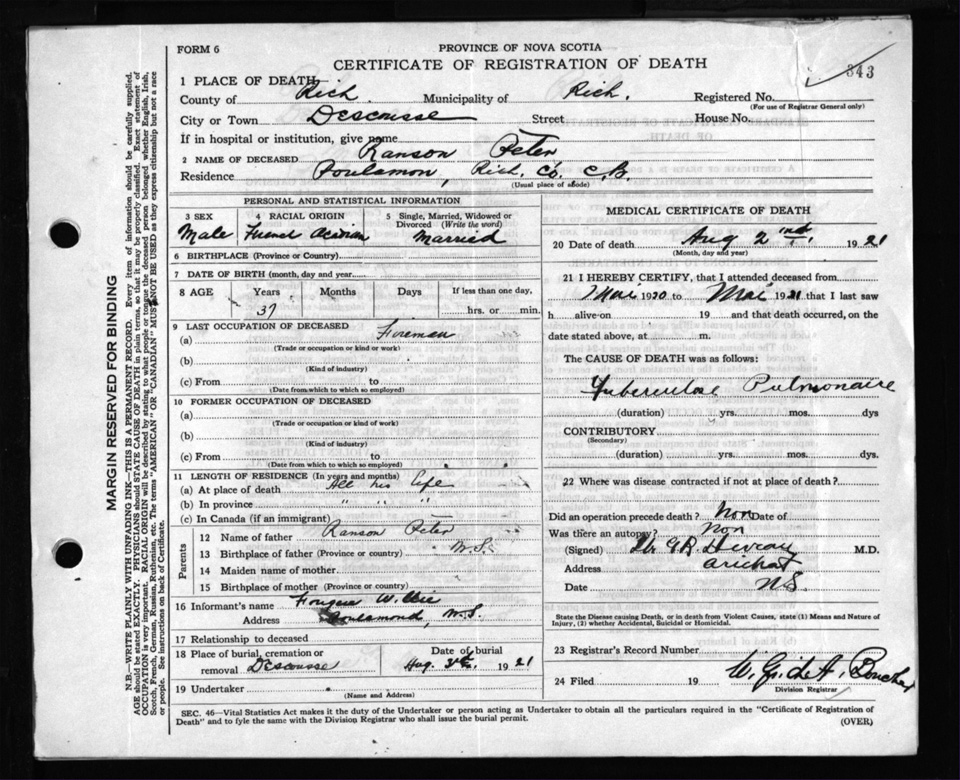 FORM 6
PROVINCE OF NOVA SCOTIA
CERTIFICATE OF REGISTRATION OF DEATH
343
1 PLACE OF DEATH
County of Rich. Municipality of Rich. Registered No.
(For use of Registrar General only)
City or Town Descousse Street House No.
If in hospital or institution, give name
2 NAME OF DECEASED Ranson Peter
Residence Poulamon, Rich. Co. C.B.
(Usual place of abode)
PERSONAL AND STATISTICAL INFORMATION
3 SEX 4 RACIAL ORIGIN 5 Single, Married, Widowed or Divorced (Write the word)
Male French Acadian Married
6 BIRTHPLACE (Province or Country)
7 DATE OF BIRTH (month, day and year)
8 AGE Years Months Days If less than one day,
37 hrs. or min.
9 LAST OCCUPATION OF DECEASED
(a) Fireman
(Trade or occupation or kind or work)
(b)
(Kind of industry)
(c) From to
(Date from which to which so employed)
10 FORMER OCCUPATION OF DECEASED
(a)
(Trade or occupation or kind of work)
(b)
(Kind of industry)
(c) From to
(Date from which to which so employed)
11 LENGTH OF RESIDENCE (In years and months)
(a) At place of death All his life
(b) In province " " " "
(c) In Canada (if an immigrant)
Parents
12 Name of father Ranson Peter
13 Birthplace of father (Province or country) N.S.
14 Maiden name of mother
15 Birthplace of mother (Province or country)
16 Informant's name Willie
Address Poulamond, N.S.
17 Relationship to deceased
18 Place of burial, cremation or removal Descousse
Date of burial
Aug. 1921
19 Undertaker
(Name and Address)
MEDICAL CERTIFICATE OF DEATH
20 Date of death Aug 2nd, 1921
(Month, day and year)
21 I HEREBY CERTIFY, that I attended deceased from
Mai 1920 to Mai 1921 that I last saw
h alive on 19 and that death occurred, on the
date stated above, at m.
The CAUSE OF DEATH was as follows:
Tuberculose Pulmonaire
(duration) yrs. mos. dys
CONTRIBUTORY
(Secondary)
(duration) yrs. mos. dys.
22 Where was disease contracted if not at place of death?
Did an operation precede death? Non Date of
Was there an autopsy? Non
(Signed) Dr M.D.
Address Arichat
Date N.S.
State the Disease causing Death, or in death from Violent Causes, state (1) Means and Nature of
Injury, (2) whether Accidental, Suicidal or Homicidal.
23 Registrar's Record Number
24 Filed 19
Division Registrar
SEC. 46—Vital Statistics Act makes it the duty of the Undertaker or person acting as Undertaker to obtain all the particulars required in the "Certificate of Registration of
Death" and to fyle the same with the Division Registrar who shall issue the burial permit.
(OVER)
MARGIN RESERVED FOR BINDING
N.B.—WRITE PLAINLY WITH UNFADING INK.—THIS IS A PERMANENT RECORD. Every item of information should be carefully supplied.
AGE should be stated EXACTLY. PHYSICIANS should STATE CAUSE OF DEATH in plain terms, so that it may be properly classified. Exact statement of
OCCUPATION is very important. RACIAL ORIGIN will be described by stating to what people or tongue the deceased person belonged whether English, Irish,
Scotch, French, German, Russian, Ruthenian, etc. The terms "AMERICAN" OR "CANADIAN" MUST NOT BE USED as they express citizenship but not a race
or people. See instructions on back of Certificate.